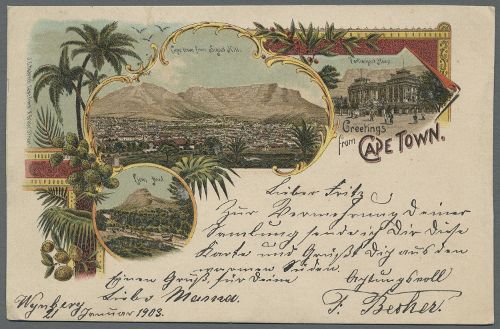 Cape town from Signal Hill.
Parliament House
Greetings
from CAPE TOWN.
Lions Head
Lieber Fritz
Zur Vermehrung Deiner
Samlung sende ich Dir Diese
Karte und Grüße Dich aus dem
warmen Süden.
Einen Gruß für deine
Liebe Mama.
Achtungsvoll
F. Becher.
Wynberg
21 Januar 1903.